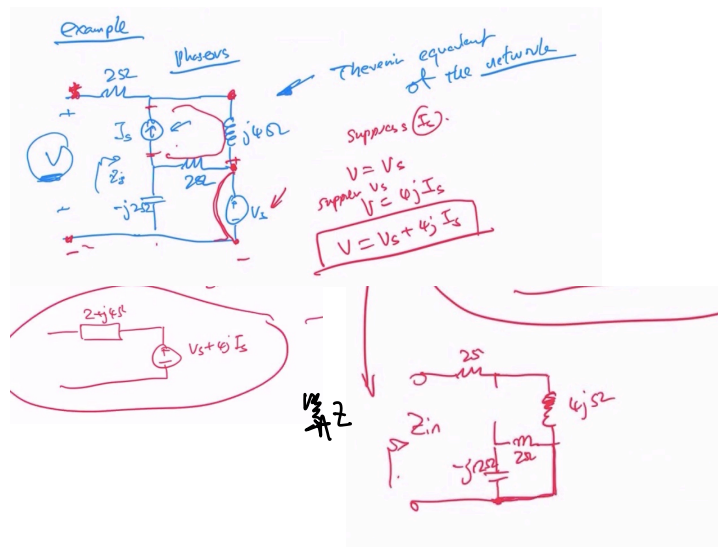 example
Phasors
Thevenin equivalent
of the network
2Ω
+
V
-
Is
j4Ω
Zs
2Ω
-j2Ω
+
Vs
-
suppress Is.
V = Vs
suppress Vs
V = 4j Is
V = Vs + 4j Is
2+j4Ω
Vs+4j Is
2Ω
4jΩ
Zin
2Ω
-j2Ω
Z